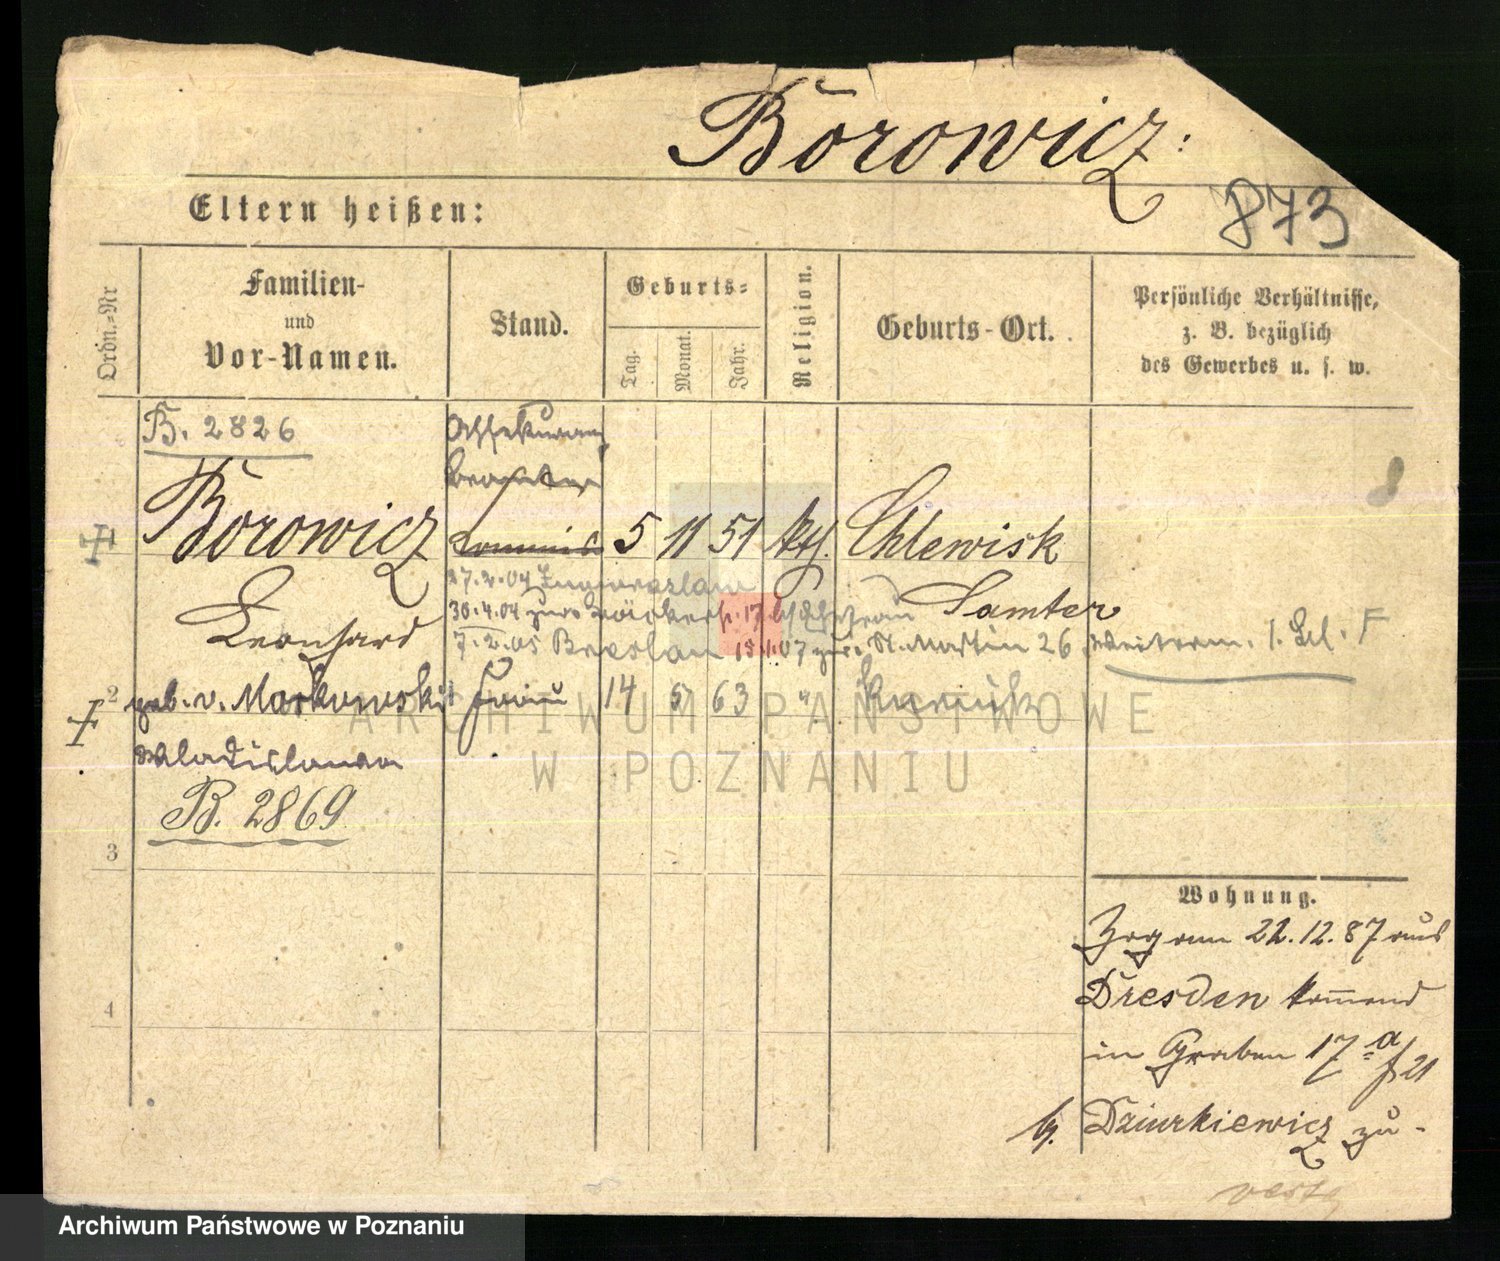 Borowicz.
873
Eltern heißen:
Ordn.-Nr
Familien-
und
Vor-Namen.
Stand.
Geburts-
Tag.
Monat.
Jahr.
Religion.
Geburts-Ort.
Persönliche Verhältnisse,
z. B. bezüglich
des Gewerbes u. s. w.
B. 2826
Assekuranz
1
Borowicz
5 11 51 kth. Chlewisk
Leonhard
Samter
27.2.04
30.4.04 zur. Bäckerstr. 17 b/
7.2.05 Breslau 07 zur. St. Martin 26
2
geb. v. Markowski Frau 14 63 " Kurnik
Wladislawa
B. 2869
3
4
Wohnung.
Zog am 22.12.87 aus
Dresden kommend
in Graben 17 a f 21
b. Dziurkiewicz zu.
ARCHIWUM PAŃSTWOWE
W POZNANIU
Archiwum Państwowe w Poznaniu